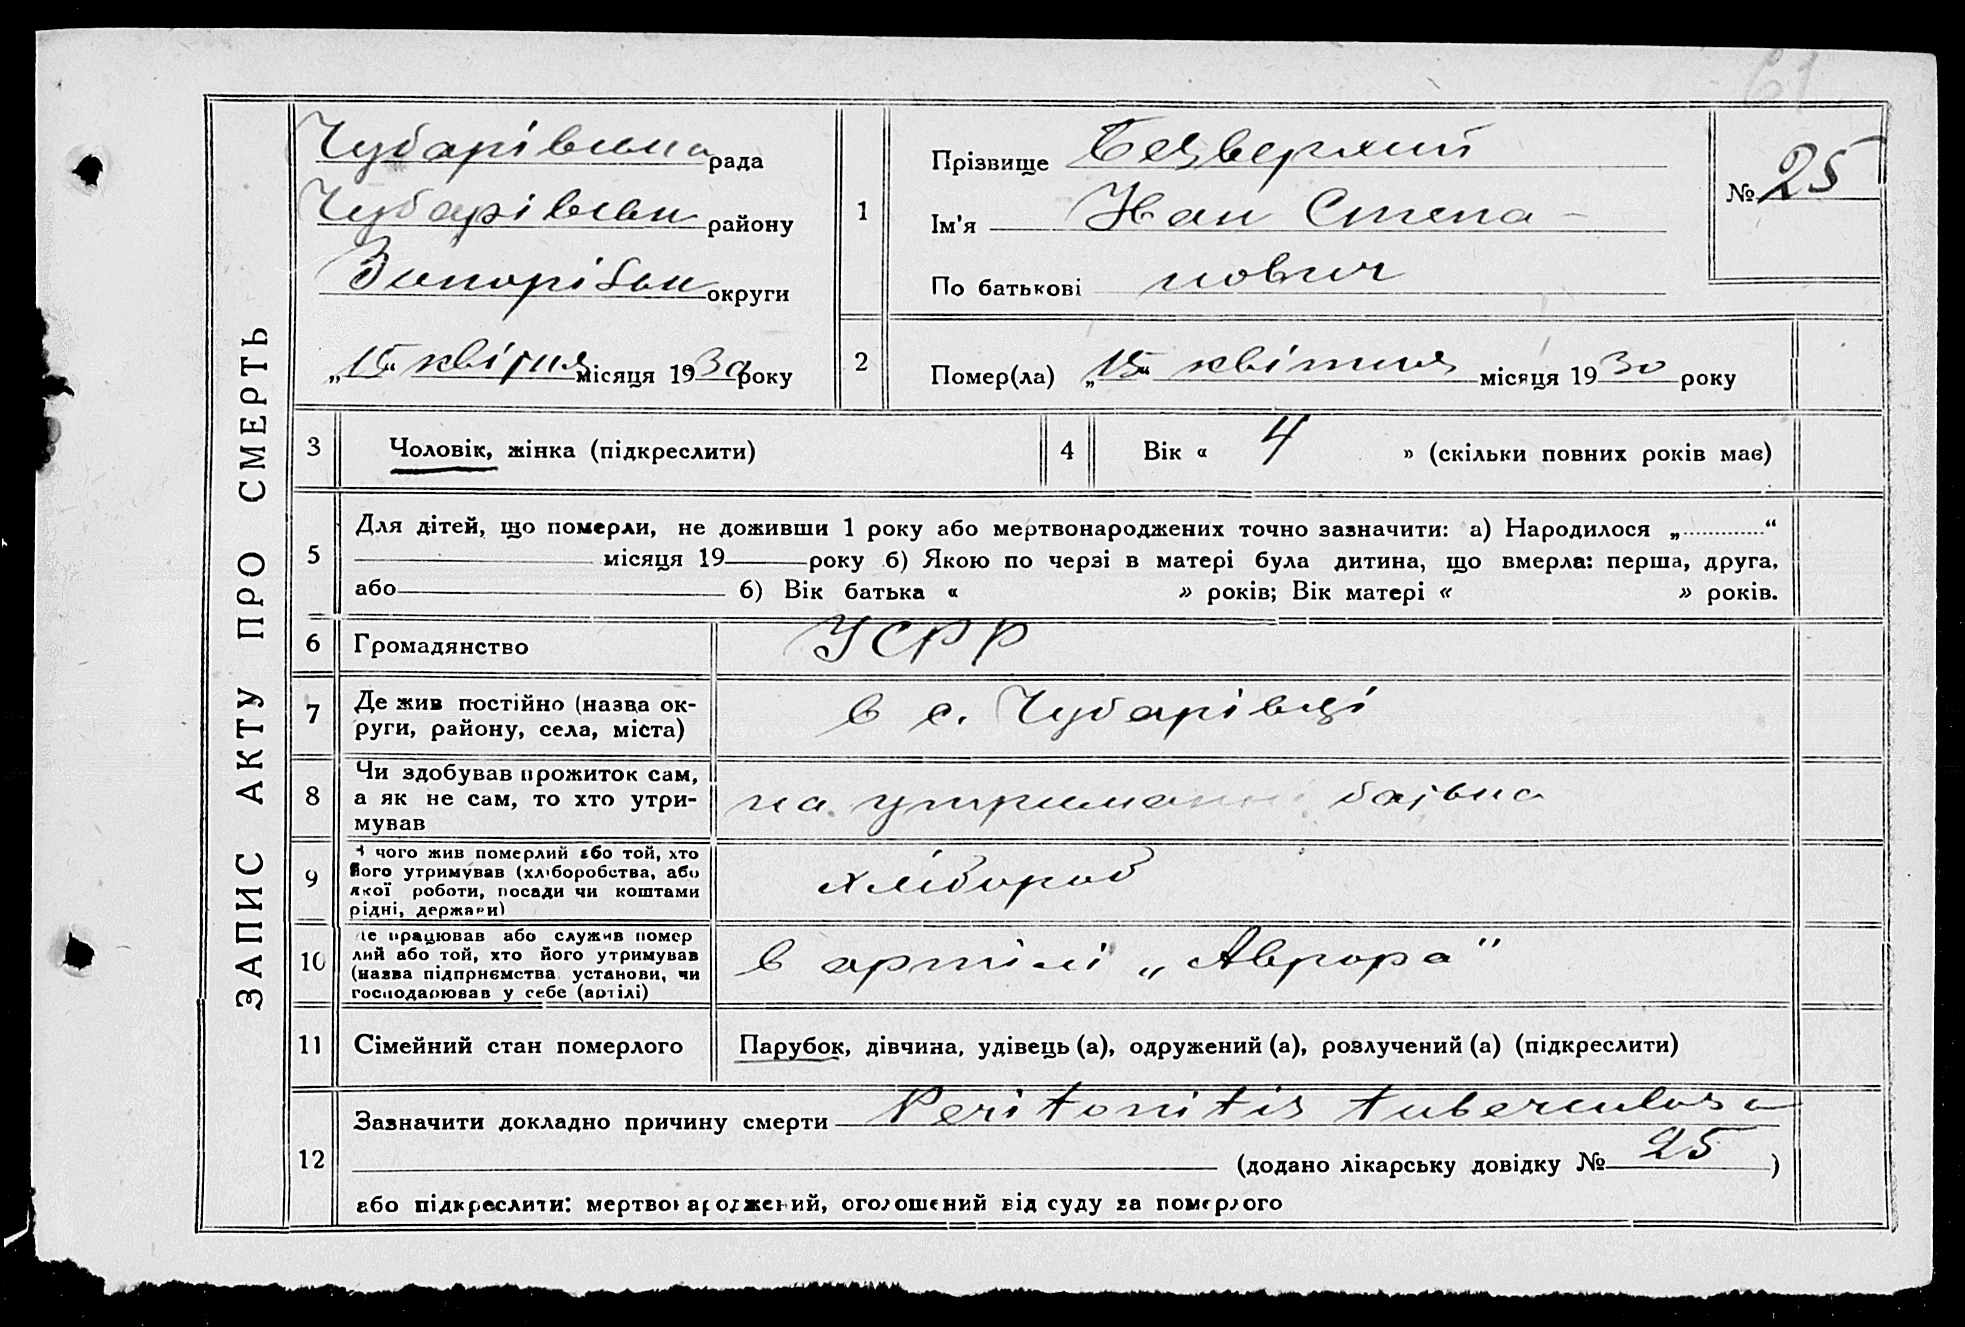 61
ЗАПИС АКТУ ПРО СМЕРТЬ
Чубарівська рада
Чубарівськ району
Запорізьк округи
„15“ квітня місяця 1930 року
1
Прізвище Безверхий
Ім'я Іван Степа-
По батькові нович
№ 25
2
Помер(ла) „15“ квітня місяця 1930 року
3
Чоловік, жінка (підкреслити)
4
Вік « 4 » (скільки повних років має)
5
Для дітей, що померли, не доживши 1 року або мертвонароджених точно зазначити: а) Народилося „ “
місяця 19 року б) Якою по черзі в матері була дитина, що вмерла: перша, друга,
або б) Вік батька « » років; Вік матері « » років.
6
Громадянство УСРР
7
Де жив постійно (назва ок-
руги, району, села, міста)
в с. Чубарівці
8
Чи здобував прожиток сам,
а як не сам, то хто утри-
мував
на утриманні батька
9
З чого жив померлий або той, хто
його утримував (хліборобства, або
якої роботи, посади чи коштами
рідні, держави)
хлібороб
10
Де працював або служив помер
лий або той, хто його утримував
(назва підприємства установи, чи
господарював у себе (артілі)
в артілі „Аврора"
11
Сімейний стан померлого
Парубок, дівчина, удівець (а), одружений (а), розлучений (а) (підкреслити)
12
Зазначити докладно причину смерти Peritonitis tuberculosa
(додано лікарську довідку № 25 )
або підкреслити: мертвонароджений, оголошений від суду за померлого